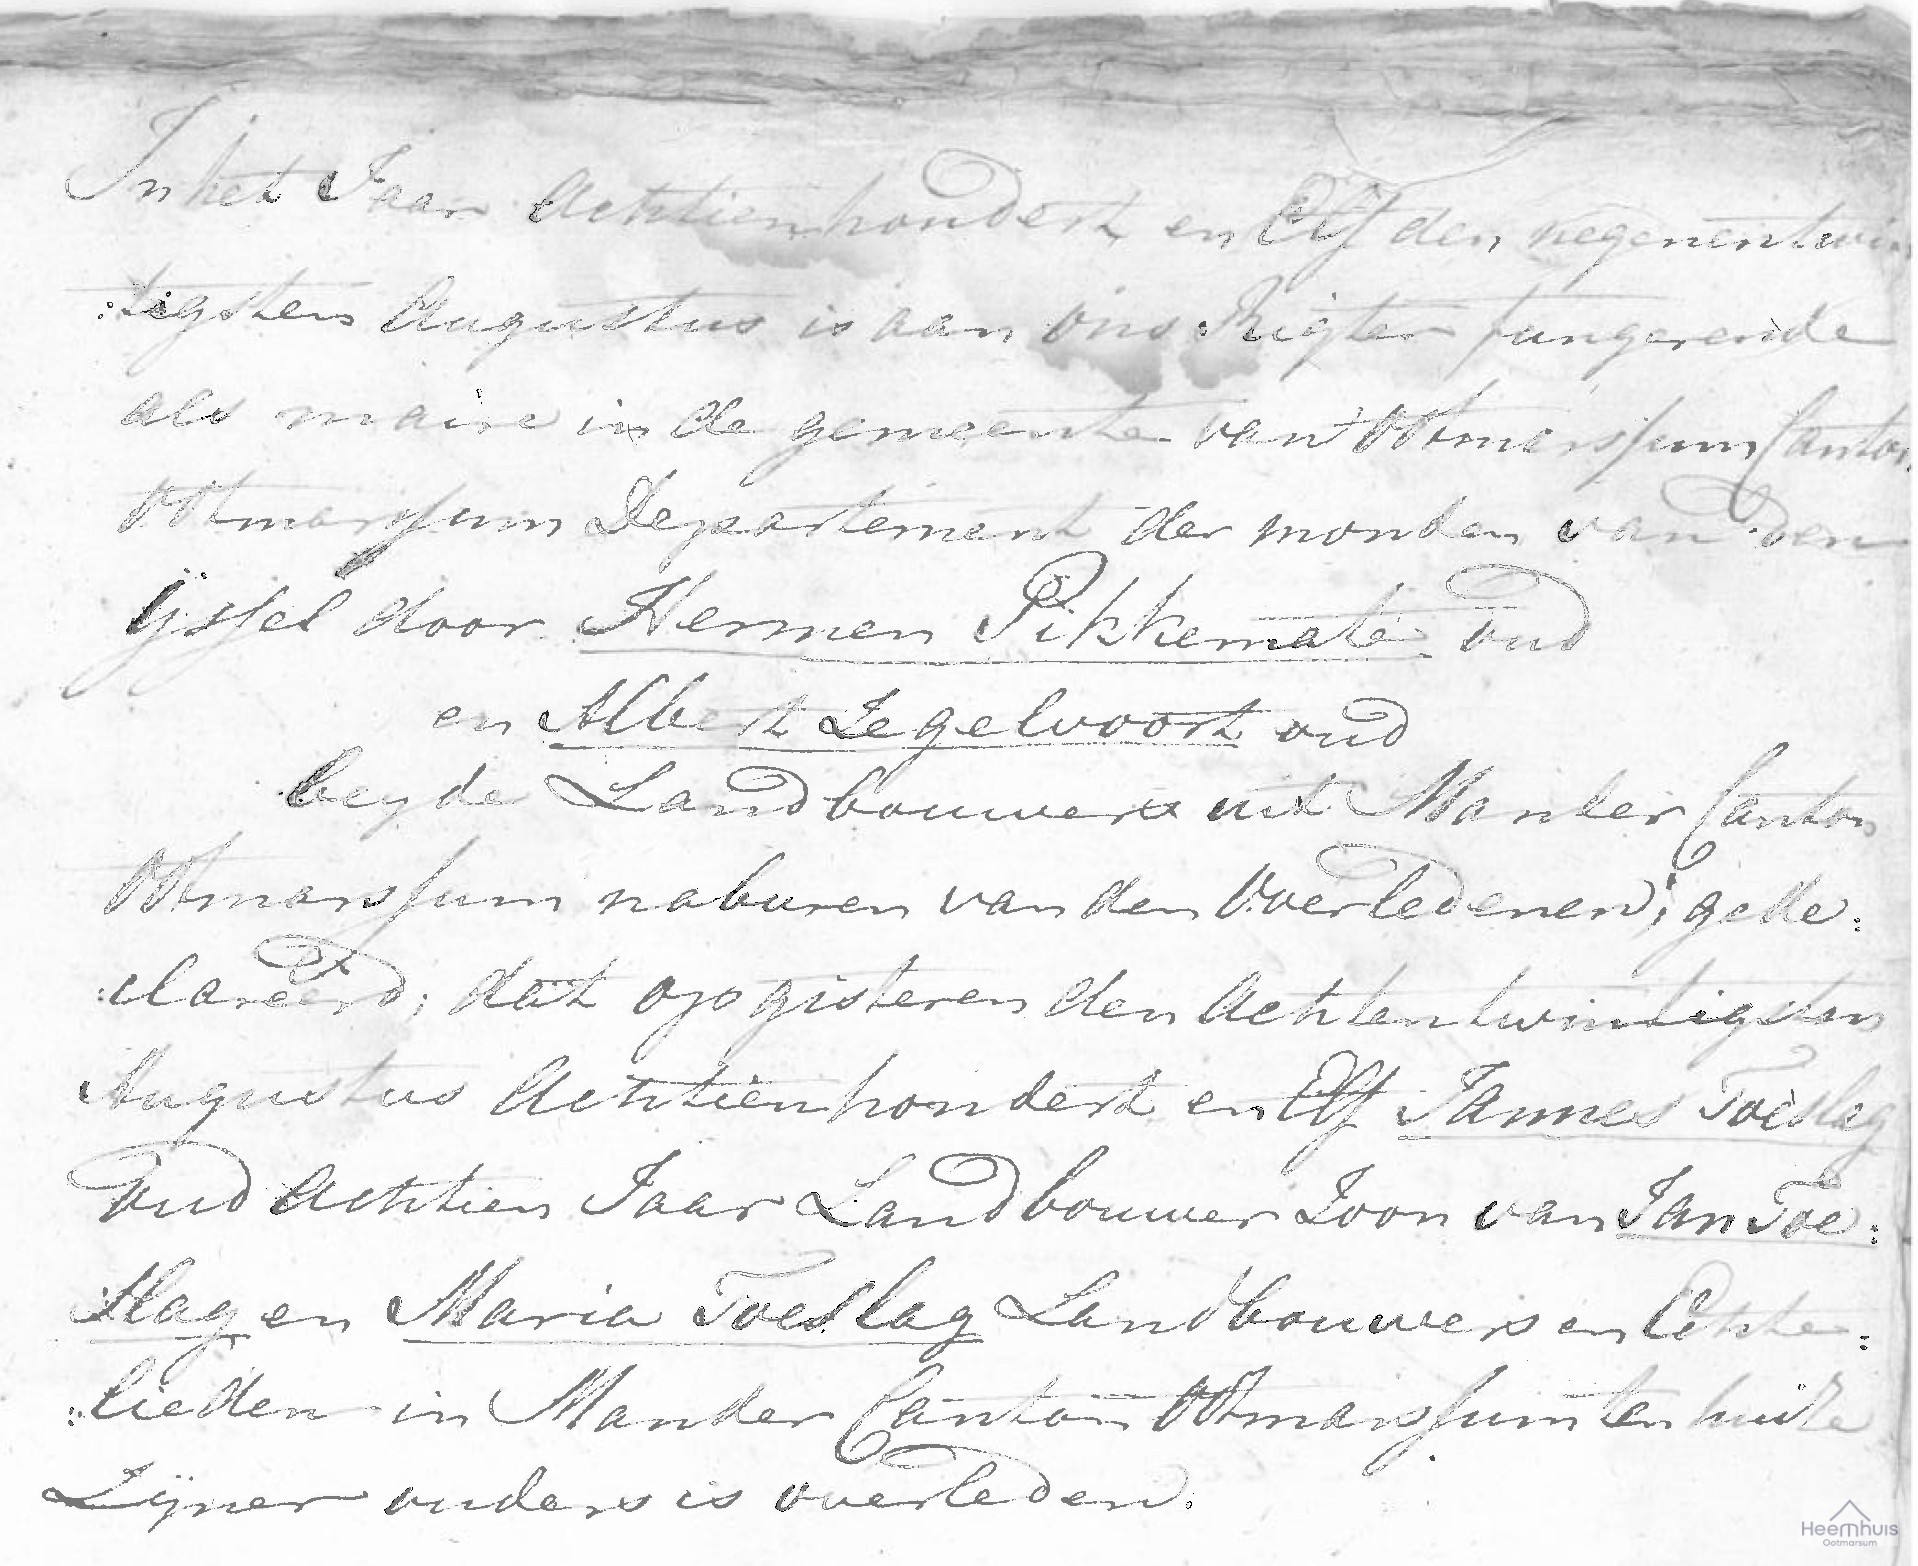 In het Jaar Achttienhondert en Elf den negenentwin
:tigsten Augustus is aan ons Rigter fungerende
als maire in de gemeente van Ootmarssum Canton
Ootmarssum Departement der monden van den
ijssel door Hermen Pikkemate oud
en Albert Zegelvoort oud
beyde Landbouwers uit Mander Canton
Ootmarssum naburen van den Overledenen; gede:
:clareerd; dat op gisteren den Achtentwintigsten
Augustus Achttienhondert en Elf Jannes Toeslag
oud Achttien Jaar Landbouwer Zoon van Jan Toe:
slag en Maria Toeslag Landbouwers en Echte:
:lieden in Mander Canton Ootmarssum ten huize
Zijner ouders is overleden.
Heemhuis
Ootmarsum